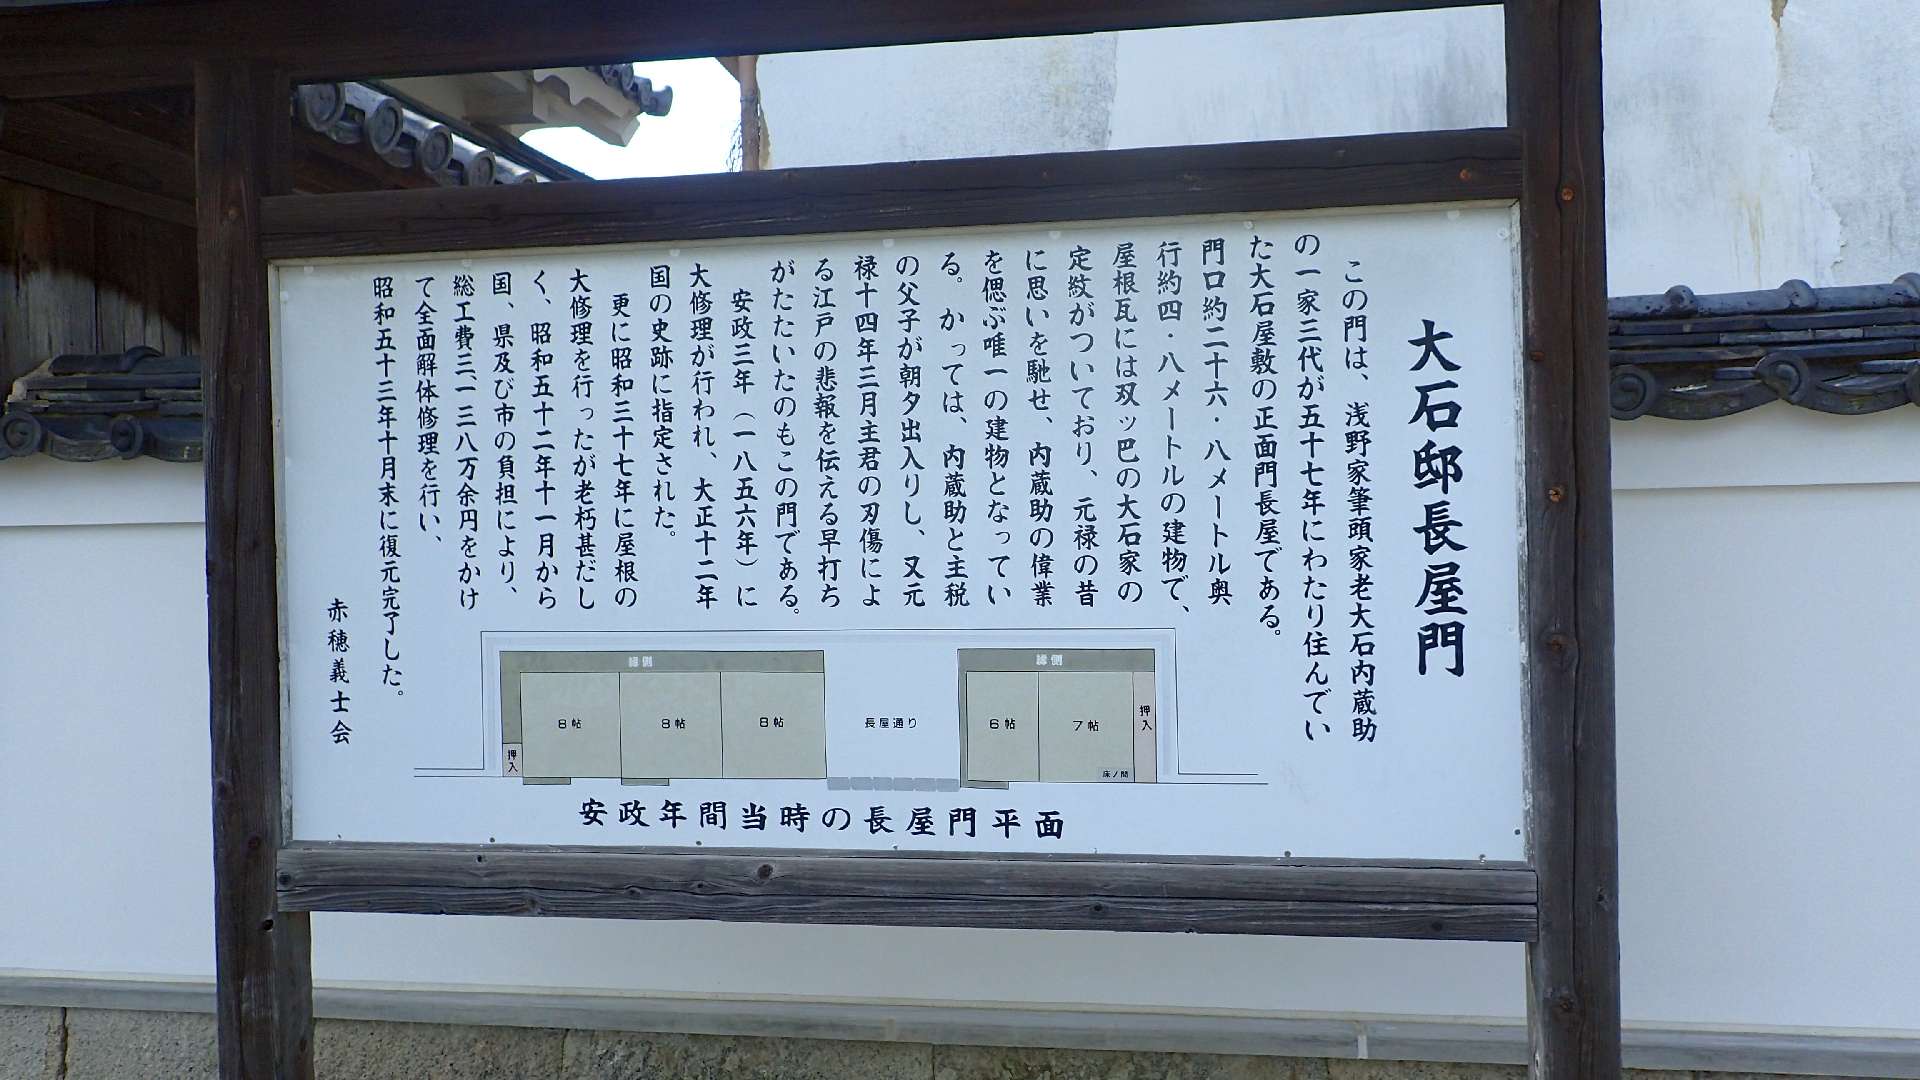 大石邸長屋門
この門は、浅野家筆頭家老大石内蔵助
の一家三代が五十七年にわたり住んでい
た大石屋敷の正面門長屋である。
門口約二十六・八メートル奥
行約四・八メートルの建物で、
屋根瓦には双ッ巴の大石家の
定紋がついており、元禄の昔
に思いを馳せ、内蔵助の偉業
を偲ぶ唯一の建物となってい
る。かっては、内蔵助と主税
の父子が朝夕出入りし、又元
禄十四年三月主君の刃傷によ
る江戸の悲報を伝える早打ち
がたたいたのもこの門である。
安政三年(一八五六年)に
大修理が行われ、大正十二年
国の史跡に指定された。
更に昭和三十七年に屋根の
大修理を行ったが老朽甚だし
く、昭和五十二年十一月から
国、県及び市の負担により、
総工費三、一三八万余円をかけ
て全面解体修理を行い、
昭和五十三年十月末に復元完了した。
赤穂義士会
縁側
縁側
8帖
8帖
8帖
長屋通り
6帖
7帖
押入
押入
床ノ間
安政年間当時の長屋門平面